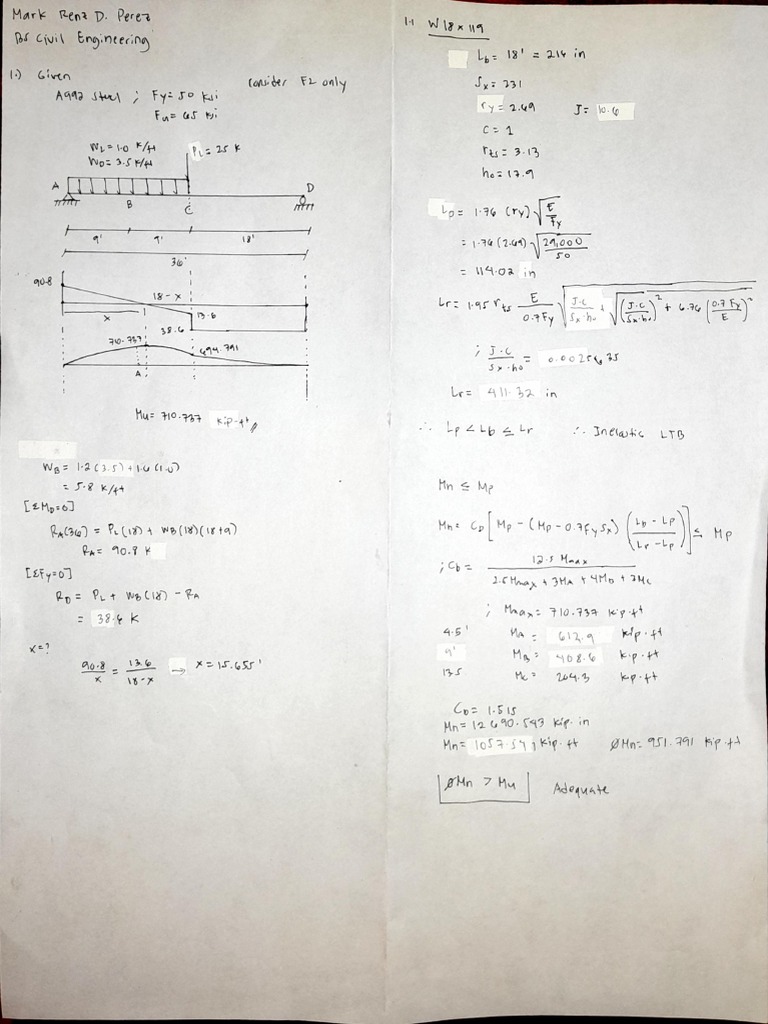 Mark Renz D. Perez
BS Civil Engineering
1.) Given
Consider F2 only
A992 Steel ; Fy = 50 ksi
Fu = 65 ksi
WL = 1.0 K/ft
WD = 3.5 K/ft
PL = 25 K
A
B
C
D
9'
9'
18'
36'
90.8
18-x
x
13.6
38.6
710.737
694.791
A
Mu = 710.737 kip-ft
WB = 1.2(3.5) + 1.6(1.0)
= 5.8 K/ft
[ΣMD=0]
RA(36) = PL(18) + WB(18)(18+9)
RA = 90.8 K
[ΣFy=0]
RD = PL + WB(18) - RA
= 38.6 K
x = ?
90.8/x = 13.6/18-x → x = 15.655'
1.1 W18 x 119
Lb = 18' = 216 in
Sx = 231
ry = 2.69 J = 10.6
C = 1
rts = 3.13
ho = 17.9
Lp = 1.76 (ry) √E/Fy
= 1.76 (2.69) √29,000/50
= 114.02 in
Lr = 1.95 rts E/0.7Fy √J·C/Sx·ho + √(J·C/Sx·ho)² + 6.76 (0.7 Fy/E)²
; J·C/Sx·ho = 
Lr = 411.32 in
∴ Lp < Lb ≤ Lr ∴ Inelastic LTB
Mn ≤ Mp
Mn = Cb [Mp - (Mp - 0.7FySx) (Lb - Lp/Lr - Lp)] ≤ Mp
; Cb = 12.5 Mmax/2.5Mmax + 3MA + 4MB + 3Mc
; Mmax = 710.737 kip·ft
4.5' Ma = 612.9 kip·ft
9' MB = 408.6 kip·ft
13.5 Mc = 204.3 kip·ft
Cb = 1.515
Mn = 12690.543 kip·in
Mn = kip·ft ØMn = 951.791 kip·ft
ØMn > Mu Adequate